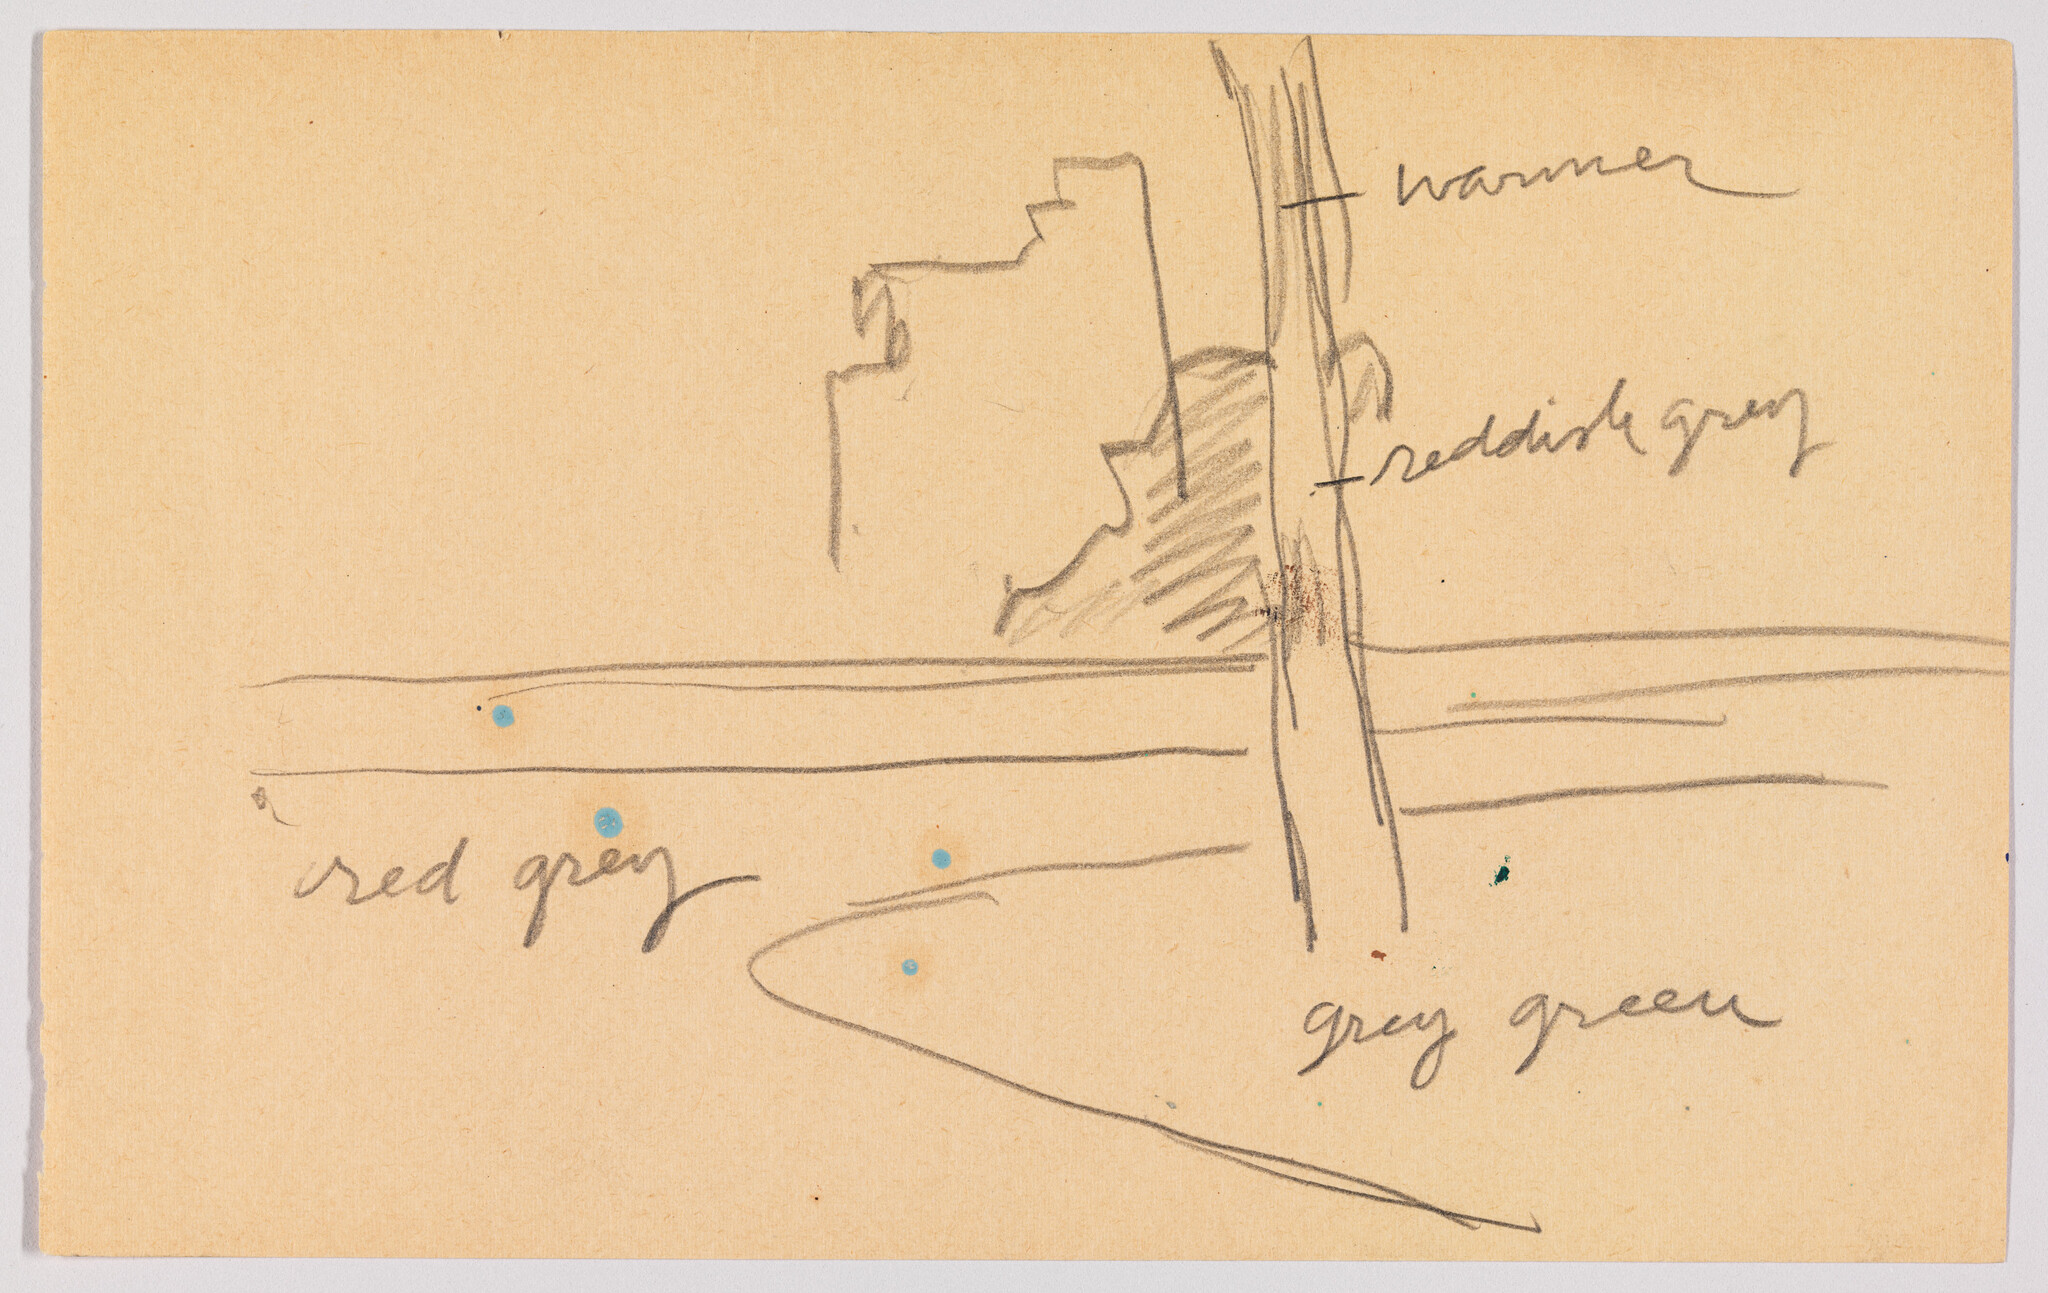 warmer
reddish grey
red grey
grey green